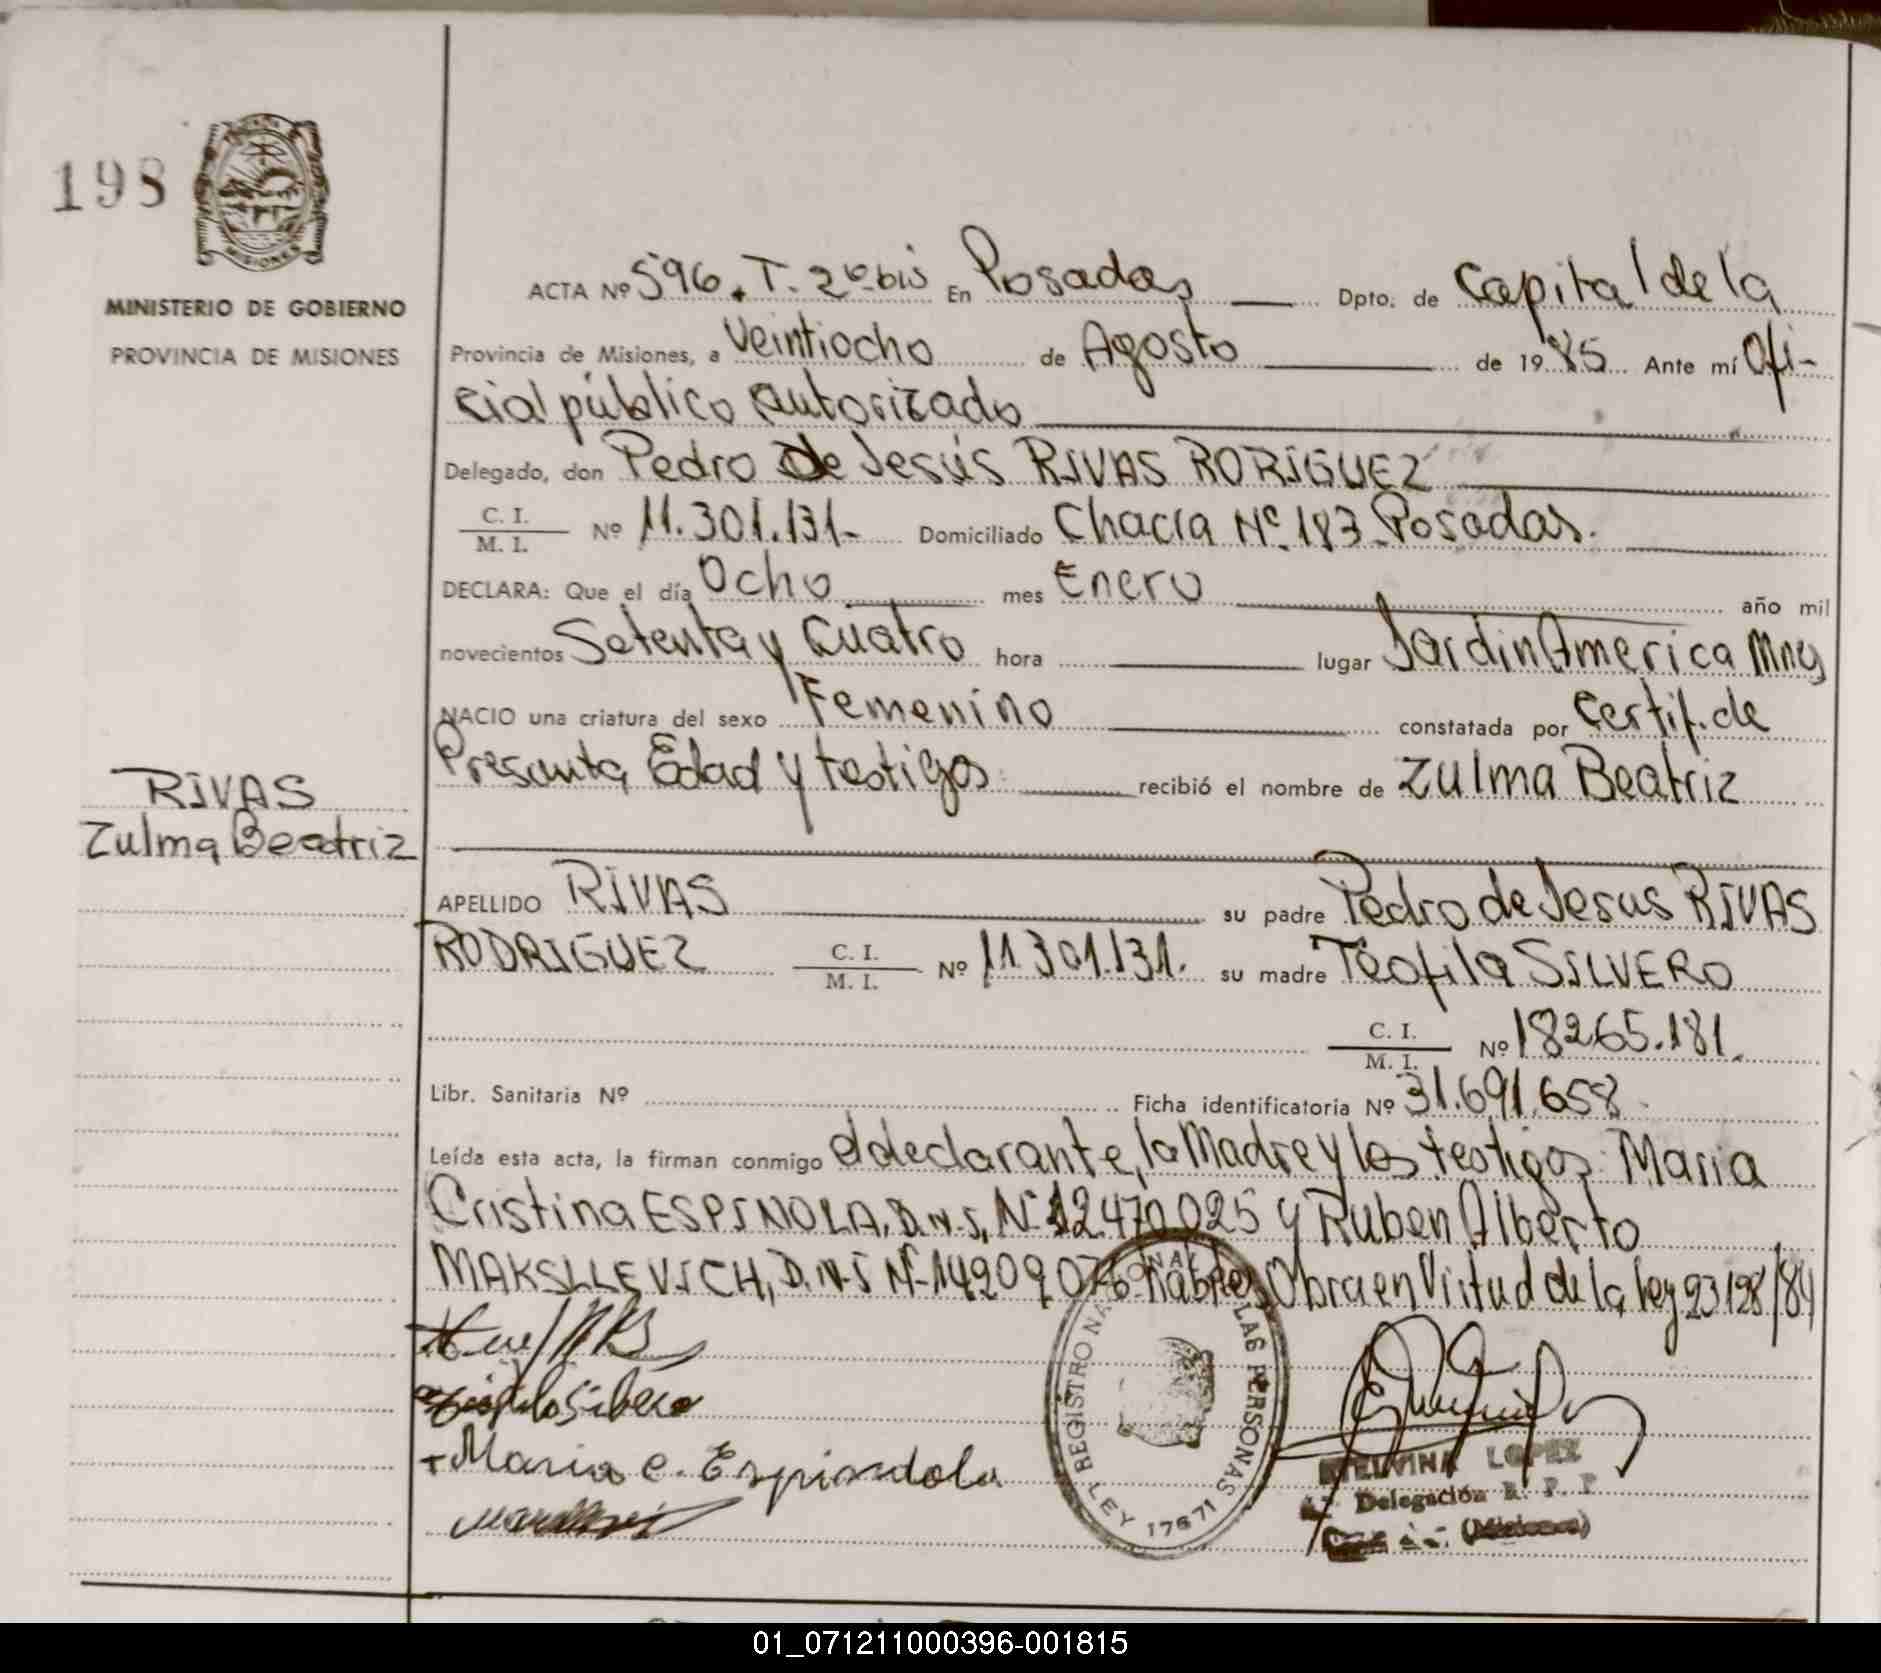 198
MISIONES
MINISTERIO DE GOBIERNO
PROVINCIA DE MISIONES
ACTA Nº 596. T. 2º bis En Posadas Dpto. de Capital de la
Provincia de Misiones, a Veintiocho de Agosto de 1985 Ante mí Ofi-
cial público autorizado
Delegado, don Pedro De Jesús RIVAS RORIGUEZ
C. I.
M. I. Nº 11.301.131- Domiciliado Chacra Nº 183 Posadas.
DECLARA: Que el día Ocho mes Enero año mil
novecientos Setenta y Cuatro hora lugar Jardin America Mnes
NACIO una criatura del sexo Femenino constatada por Certif. de
Presunta Edad y testigos recibió el nombre de Zulma Beatriz
RIVAS
Zulma Beatriz
APELLIDO RIVAS su padre Pedro de Jesus RIVAS
RODRIGUEZ C. I.
M. I. Nº 11.301.131. su madre Teofila SILVERO
C. I.
M. I. Nº 18265.181.
Libr. Sanitaria Nº Ficha identificatoria Nº 31.691.658
Leída esta acta, la firman conmigo el declarante, la Madre y los testigos: Maria
Cristina ESPINOLA, D.N.I. Nº 12470025 y Ruben Alberto
MAKSLLEVICH, D.N.I Nº 14209076 Obra en Virtud de la ley 23128/84
Maria C. Espindola
REGISTRO NACIONAL DE LAS PERSONAS
LEY 17671
LOPEZ
Delegación R. P. P
(Misiones)
01_071211000396-001815